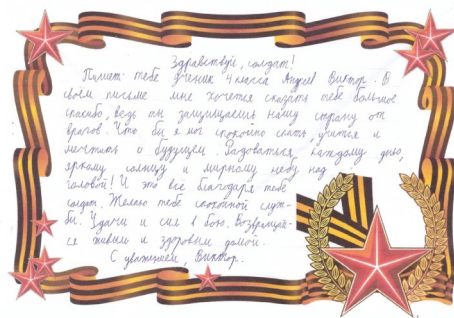 Здравствуй, солдат!
Пишет тебе ученик 4 класса Андеев Виктор. В
своём письме мне хочется сказать тебе большое
спасибо, ведь ты защищаешь нашу страну от
врагов. Что бы я мог спокойно спать, учится и
мечтать о будущем. Радоваться, каждому дню,
яркому солнцу и мирному небу над
головой! И это всё благодаря тебе
солдат. Желаю тебе спокойной служ-
бы. Удачи и сил в бою. Возвращай-
ся живым и здоровым домой.
С уважением, Виктор.